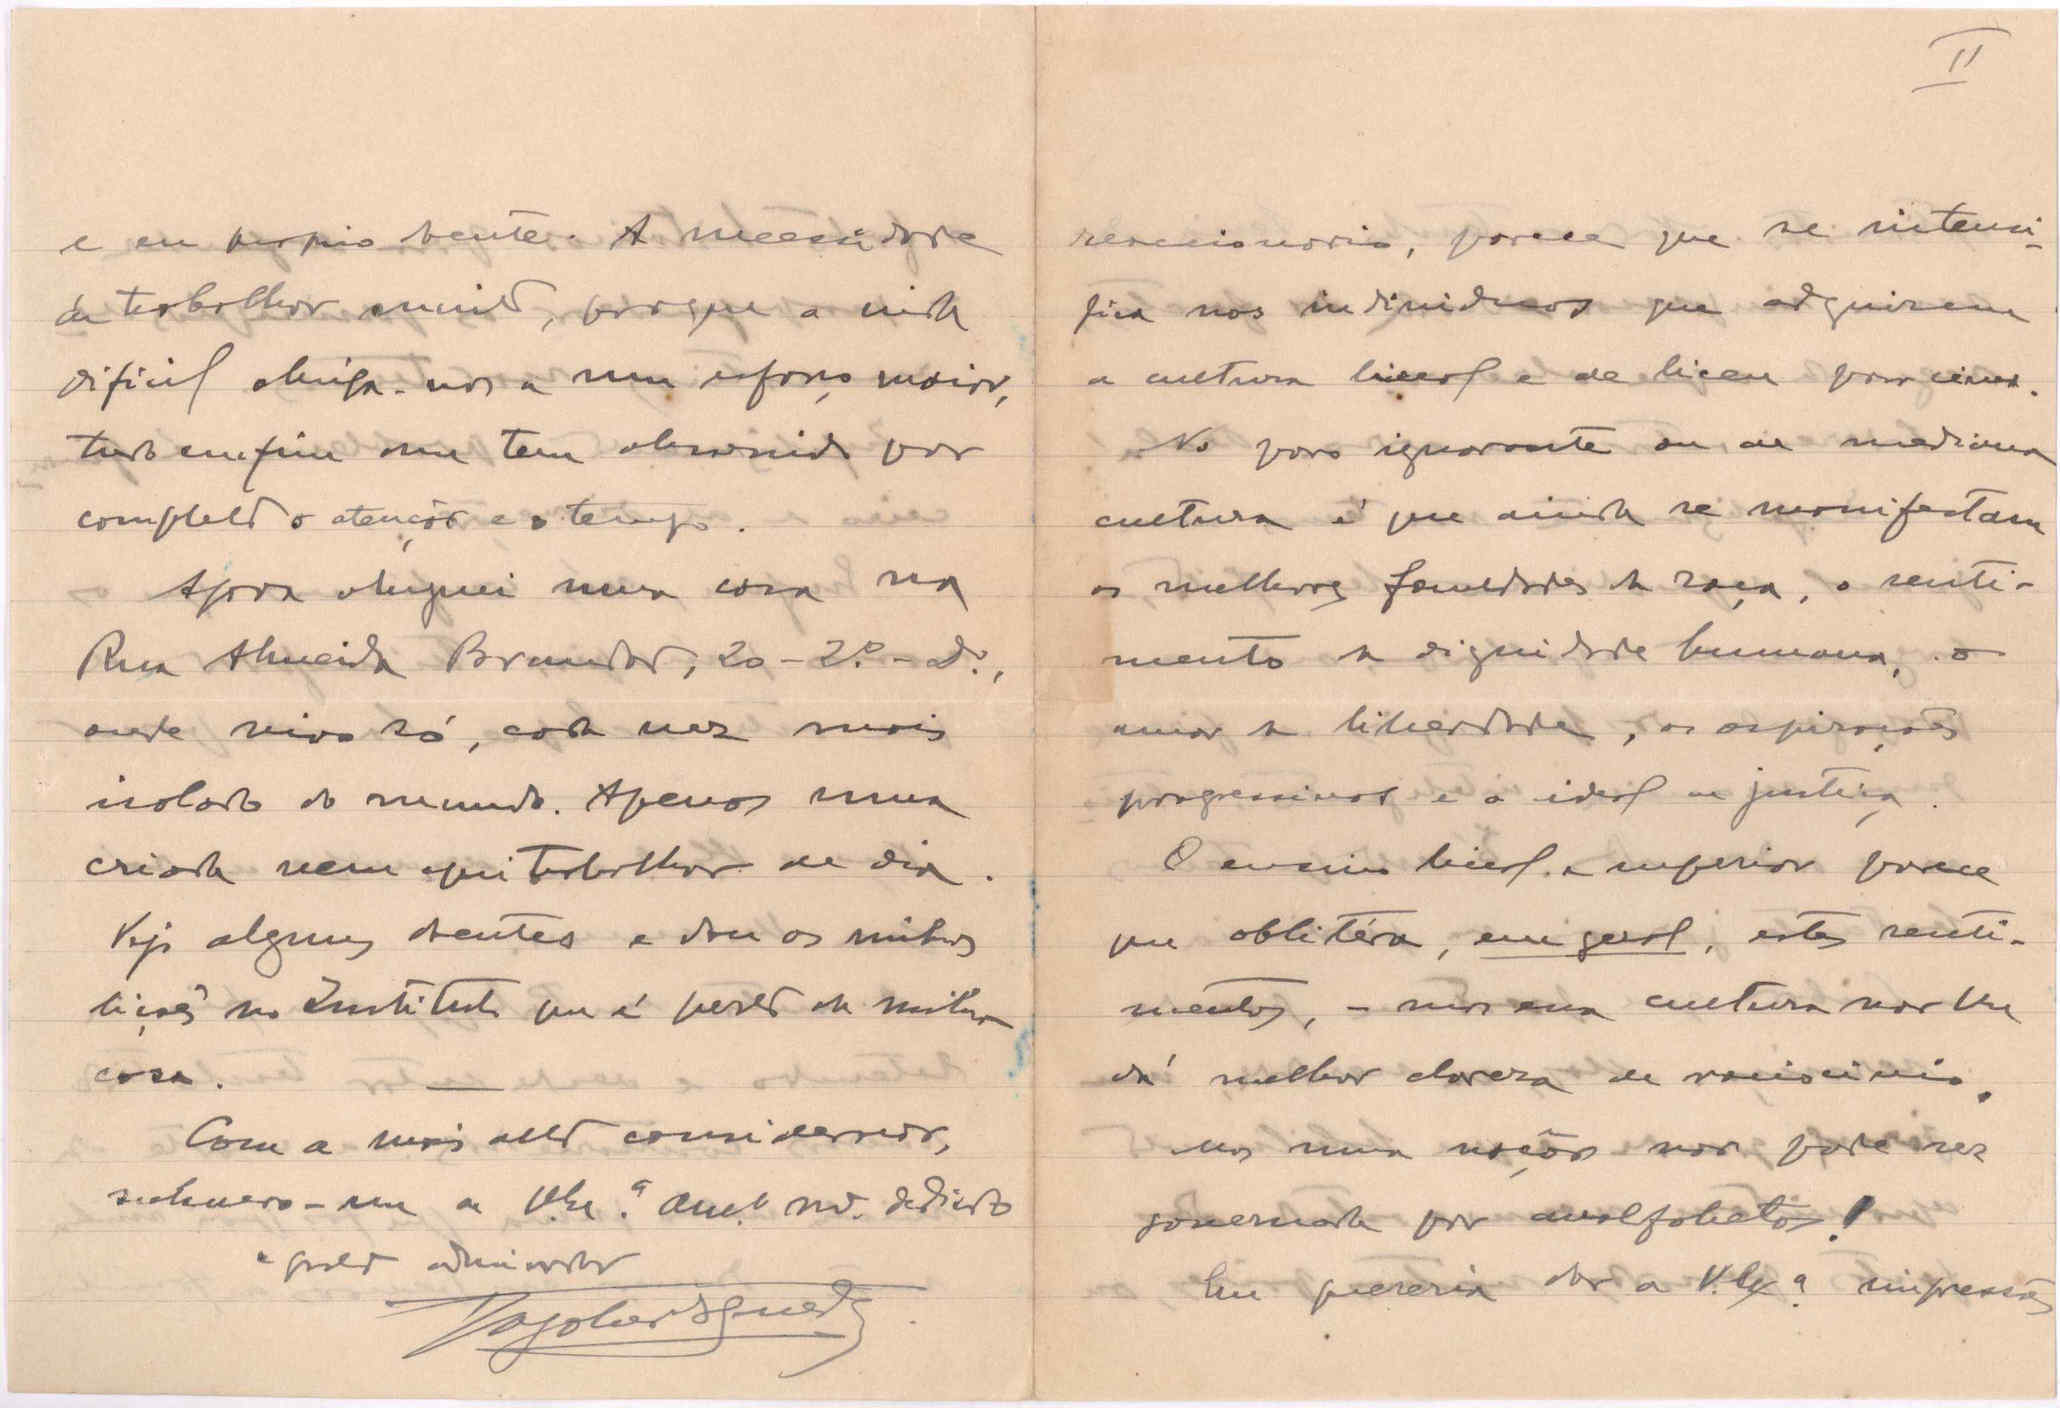 e eu proprio doente. A necessidade
de trabalhar muito, porque a vida
dificil obriga-nos a um esforço maior,
tudo emfim me tem absorvido por
completo a atenção e o tempo.
Agora aluguei uma casa na
Rua Almeida Brandão, 20-2.º-D.º,
onde vivo só, cada vez mais
isolado do mundo. Apenas uma
criada vem aqui trabalhar de dia.
Vejo alguns doentes e dou as minhas
lições no Instituto que é perto da minha
casa.
Com a mais alta consideração,
subscrevo-me de V. Ex.ª am.º m.º dedicado
e grato admirador
II
reaccionario, parece que se intensi-
fica nos individuos que adquirem
a cultura liceal e de liceu para cima.
No povo ignorante ou de mediana
cultura é que ainda se manifestam
as melhores faculdades da raça, o senti-
mento da dignidade humana, o
amor da liberdade, as aspirações
progressivas e o ideal de justiça.
O ensino liceal e superior parece
que oblitéra, em geral, estes senti-
mentos, - mas essa cultura não lhe
dá melhor clareza de raciocinio.
Mas uma nação não pode ser
governada por analfabetos!
Eu quereria dar a V. Ex.ª impressões